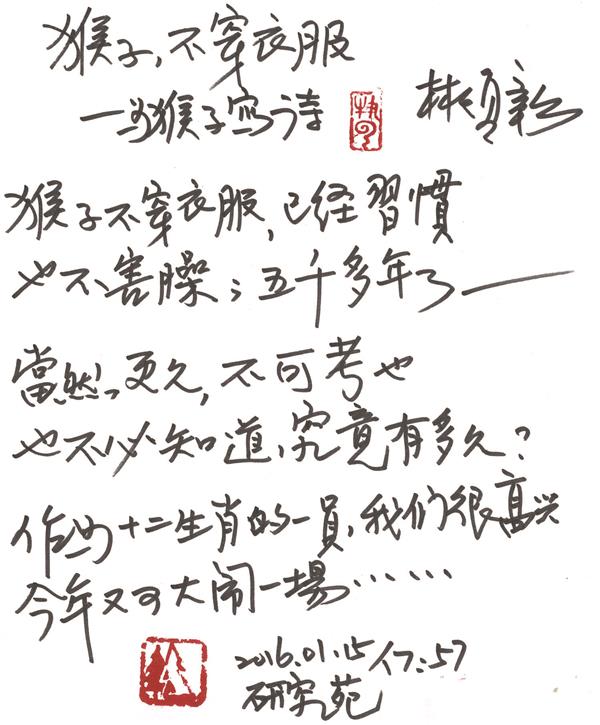 猴子,不穿衣服
一为猴子寫诗
林煥彰
猴子不穿衣服,已经習慣
也不害臊;五千多年了——
當然,更久,不可考也
也不必知道,究竟有多久?
作为十二生肖的一員,我们很高兴
今年又可大闹一場……
2016.01.15 17:57
研究苑